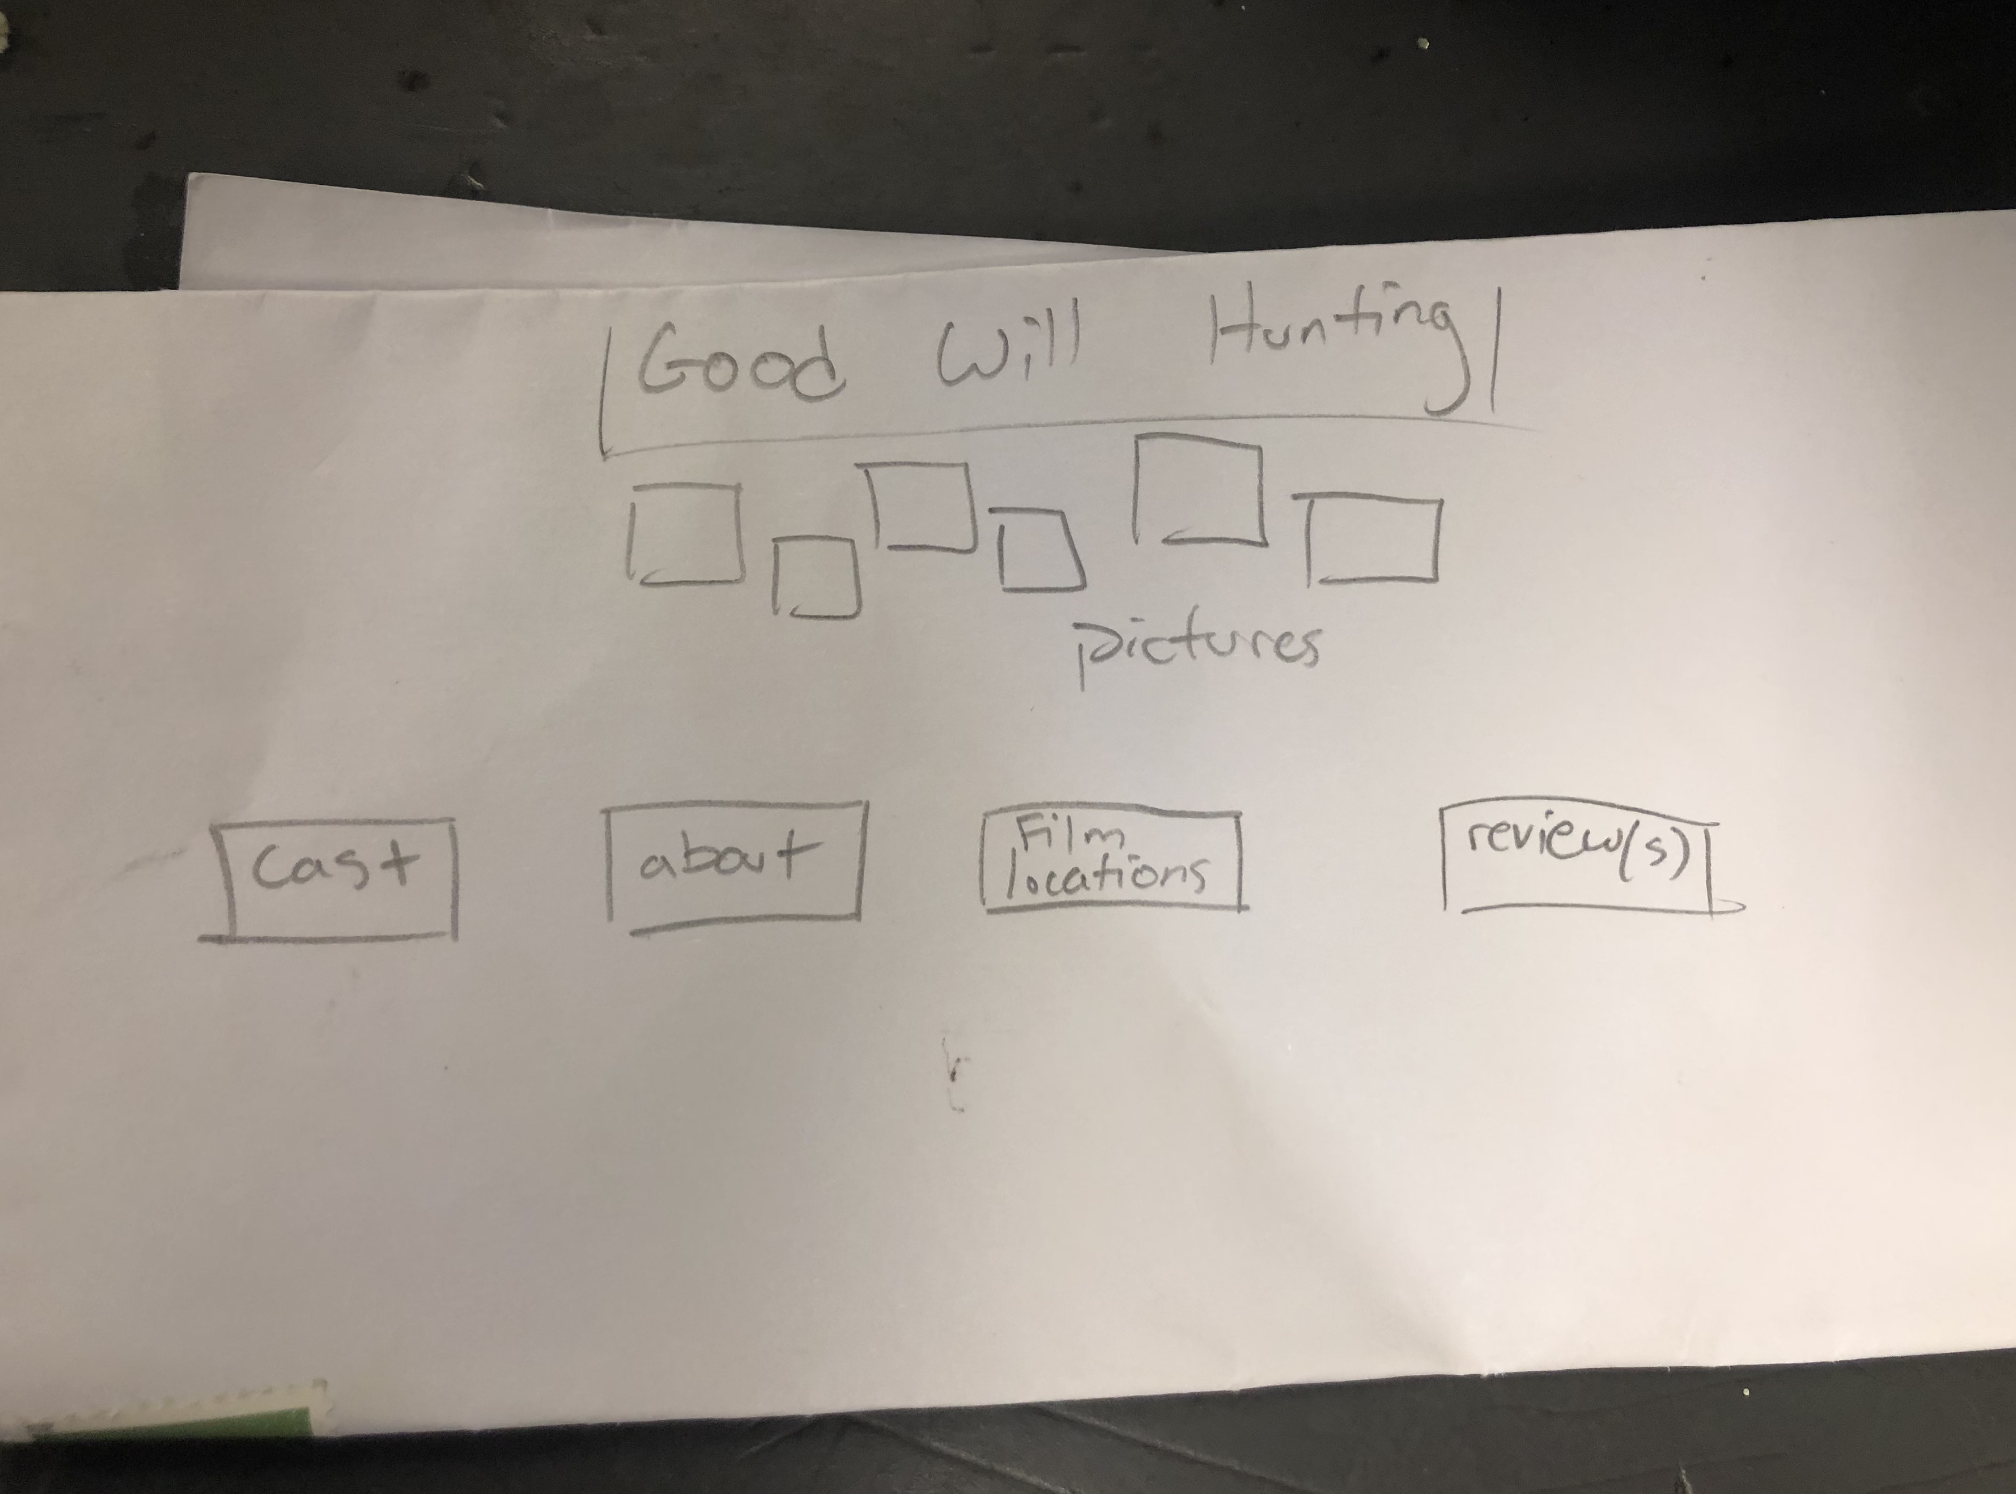 Good Will Hunting
pictures
cast
about
Film
locations
review(s)